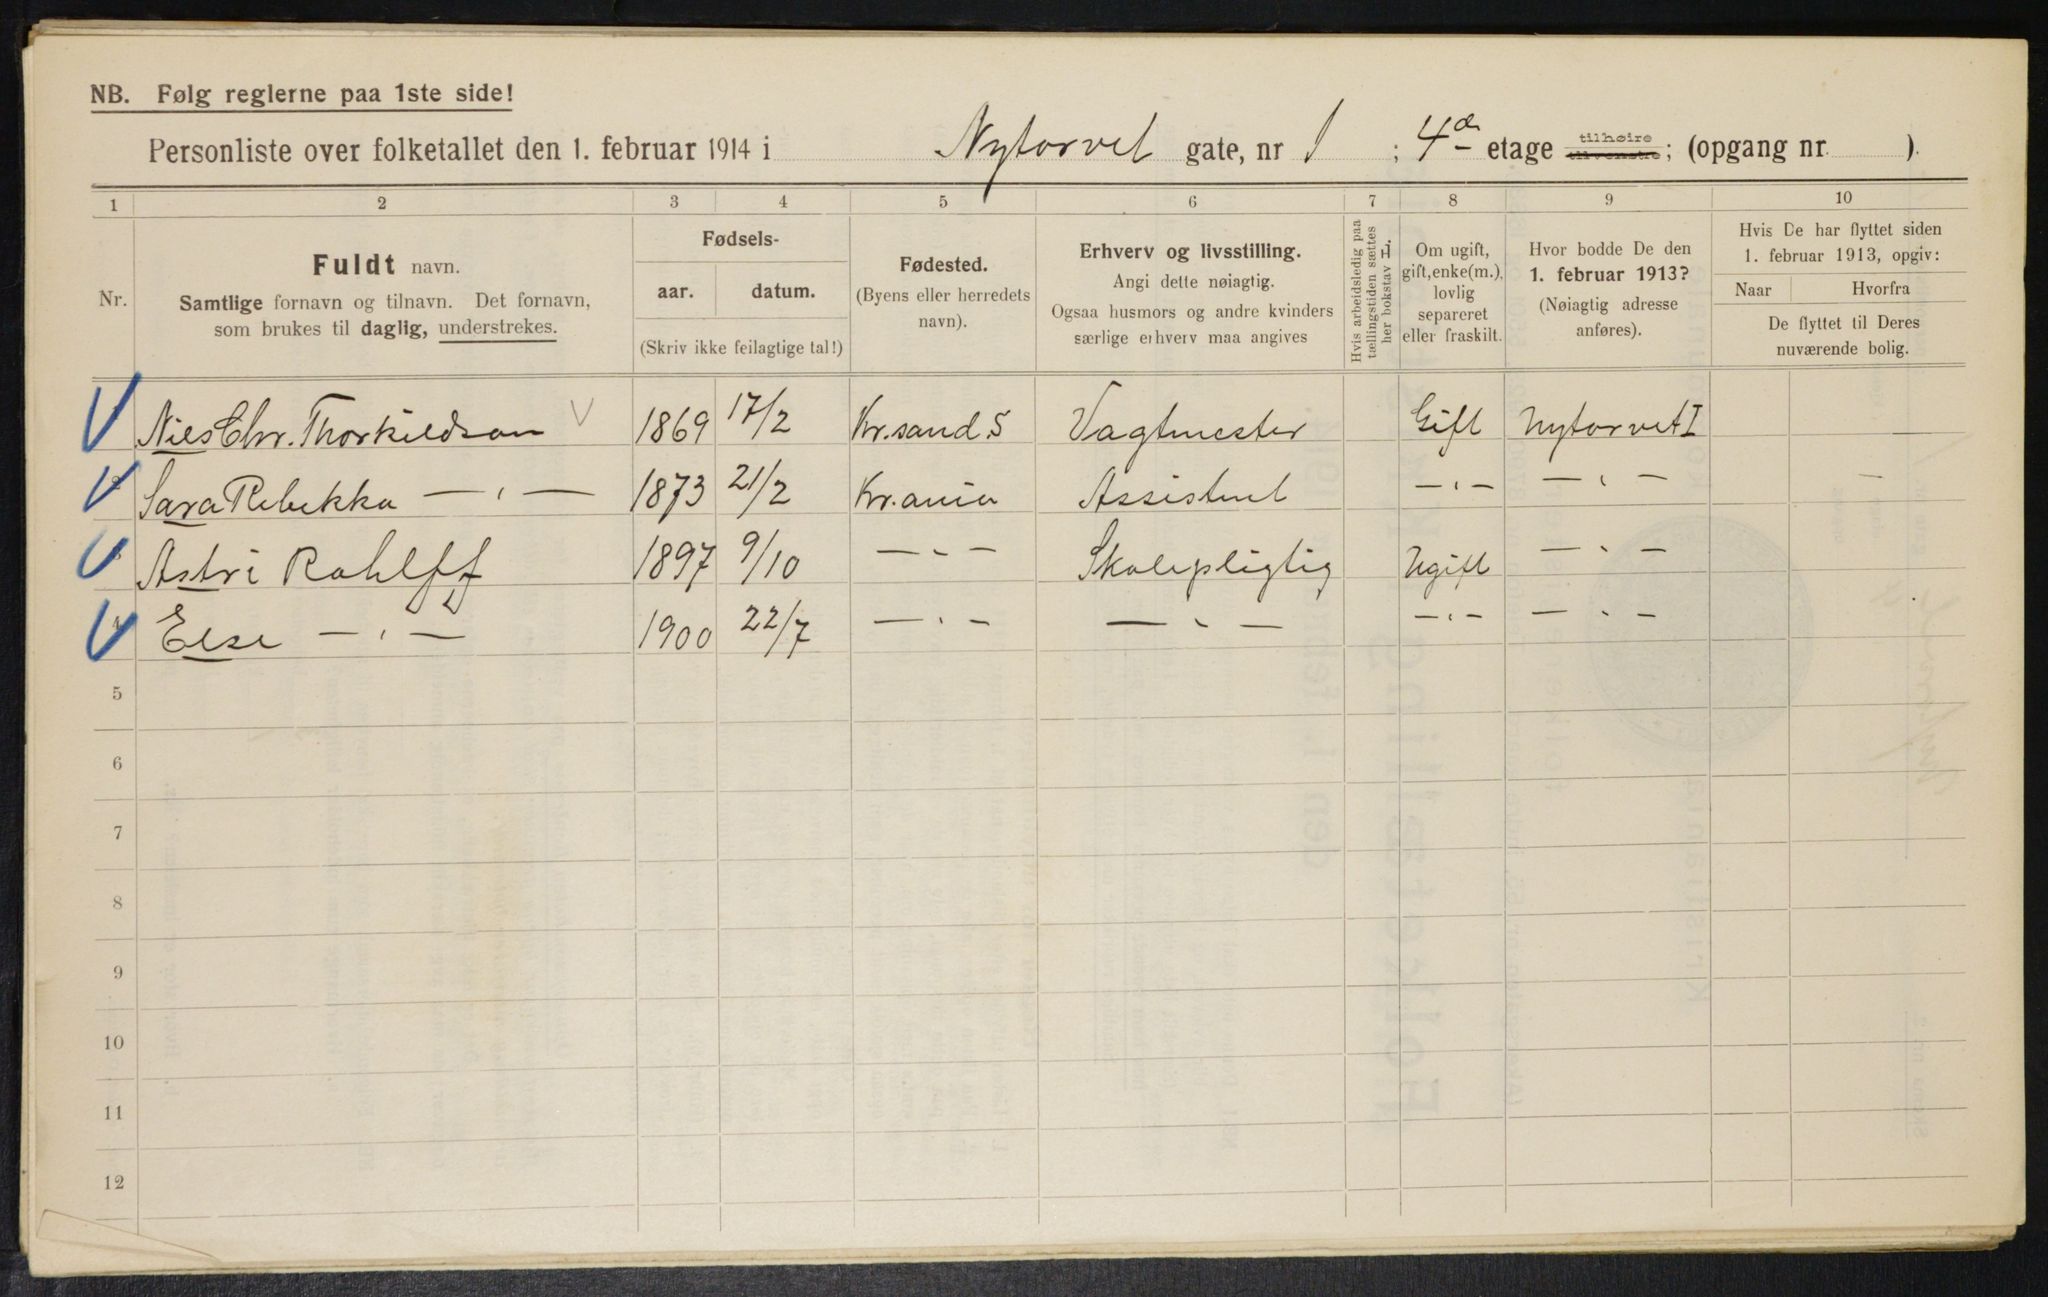 NB. Følg reglerne paa 1ste side!
Personliste over folketallet den 1. februar 1914 i Nytorvet gate, nr 1 ; 4de etage tilhøire tilvenstre; (opgang nr. ).
1 2 3 4 5 6 7 8 9 10
Nr.
Fuldt navn.
Samtlige fornavn og tilnavn. Det fornavn,
som brukes til daglig, understrekes.
Fødsels-
aar. datum.
(Skriv ikke feilagtige tal!)
Fødested.
(Byens eller herredets
navn).
Erhverv og livsstilling.
Angi dette nøiagtig.
Ogsaa husmors og andre kvinders
særlige erhverv maa angives
Hvis arbeidsledig paa
tællingstiden sættes
her bokstav L.
Om ugift,
gift, enke(m.),
lovlig
separeret
eller fraskilt.
Hvor bodde De den
1. februar 1913?
(Nøiagtig adresse
anføres).
Hvis De har flyttet siden
1. februar 1913, opgiv:
Naar Hvorfra
De flyttet til Deres
nuværende bolig.
Niels Chr. Thorkildson 1869 17/2 Kr.sand. S Vagtmester Gift Nytorvet I
2 Sara Rebekka — " — 1873 21/2 Kr.ania Assistent — " — — " — —
3 Astri Rohlff 1897 9/10 — " — Skolepligtig Ugift — " —
4 Else — " — 1900 22/7 — " — — " — — " — — " —
5
6
7
8
9
10
11
12